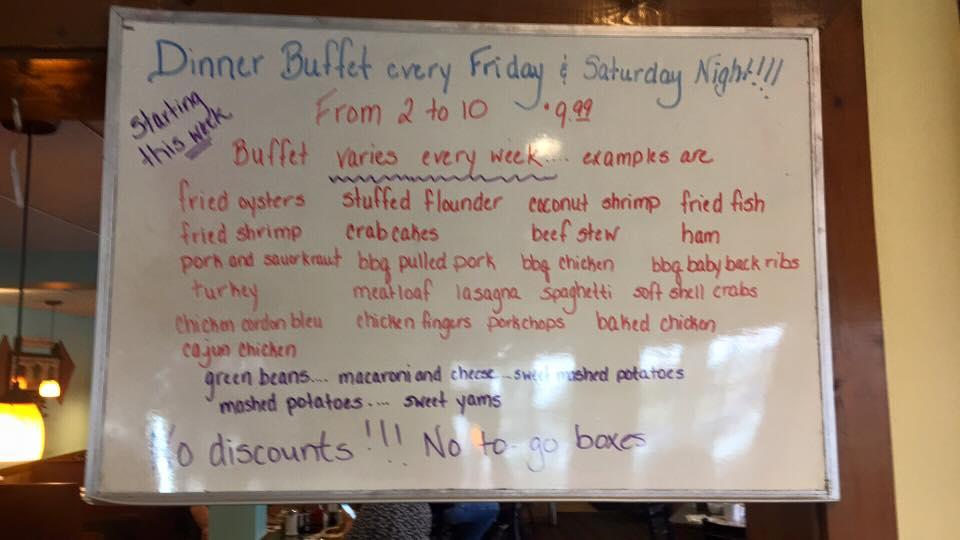 Dinner Buffet every Friday & Saturday Night!!!
Starting
this week
From 2 to 10 $9.99
Buffet varies every week.... examples are
fried oysters stuffed flounder coconut shrimp fried fish
fried shrimp crab cakes beef stew ham
pork and sauerkraut bbq pulled pork bbq chicken bbq baby back ribs
turkey meatloaf lasagna spaghetti soft shell crabs
chicken cordon bleu chicken fingers porkchops baked chicken
cajun chicken
green beans.... macaroni and cheese...sweet mashed potatoes
mashed potatoes.... sweet yams
No discounts!!! No to-go boxes